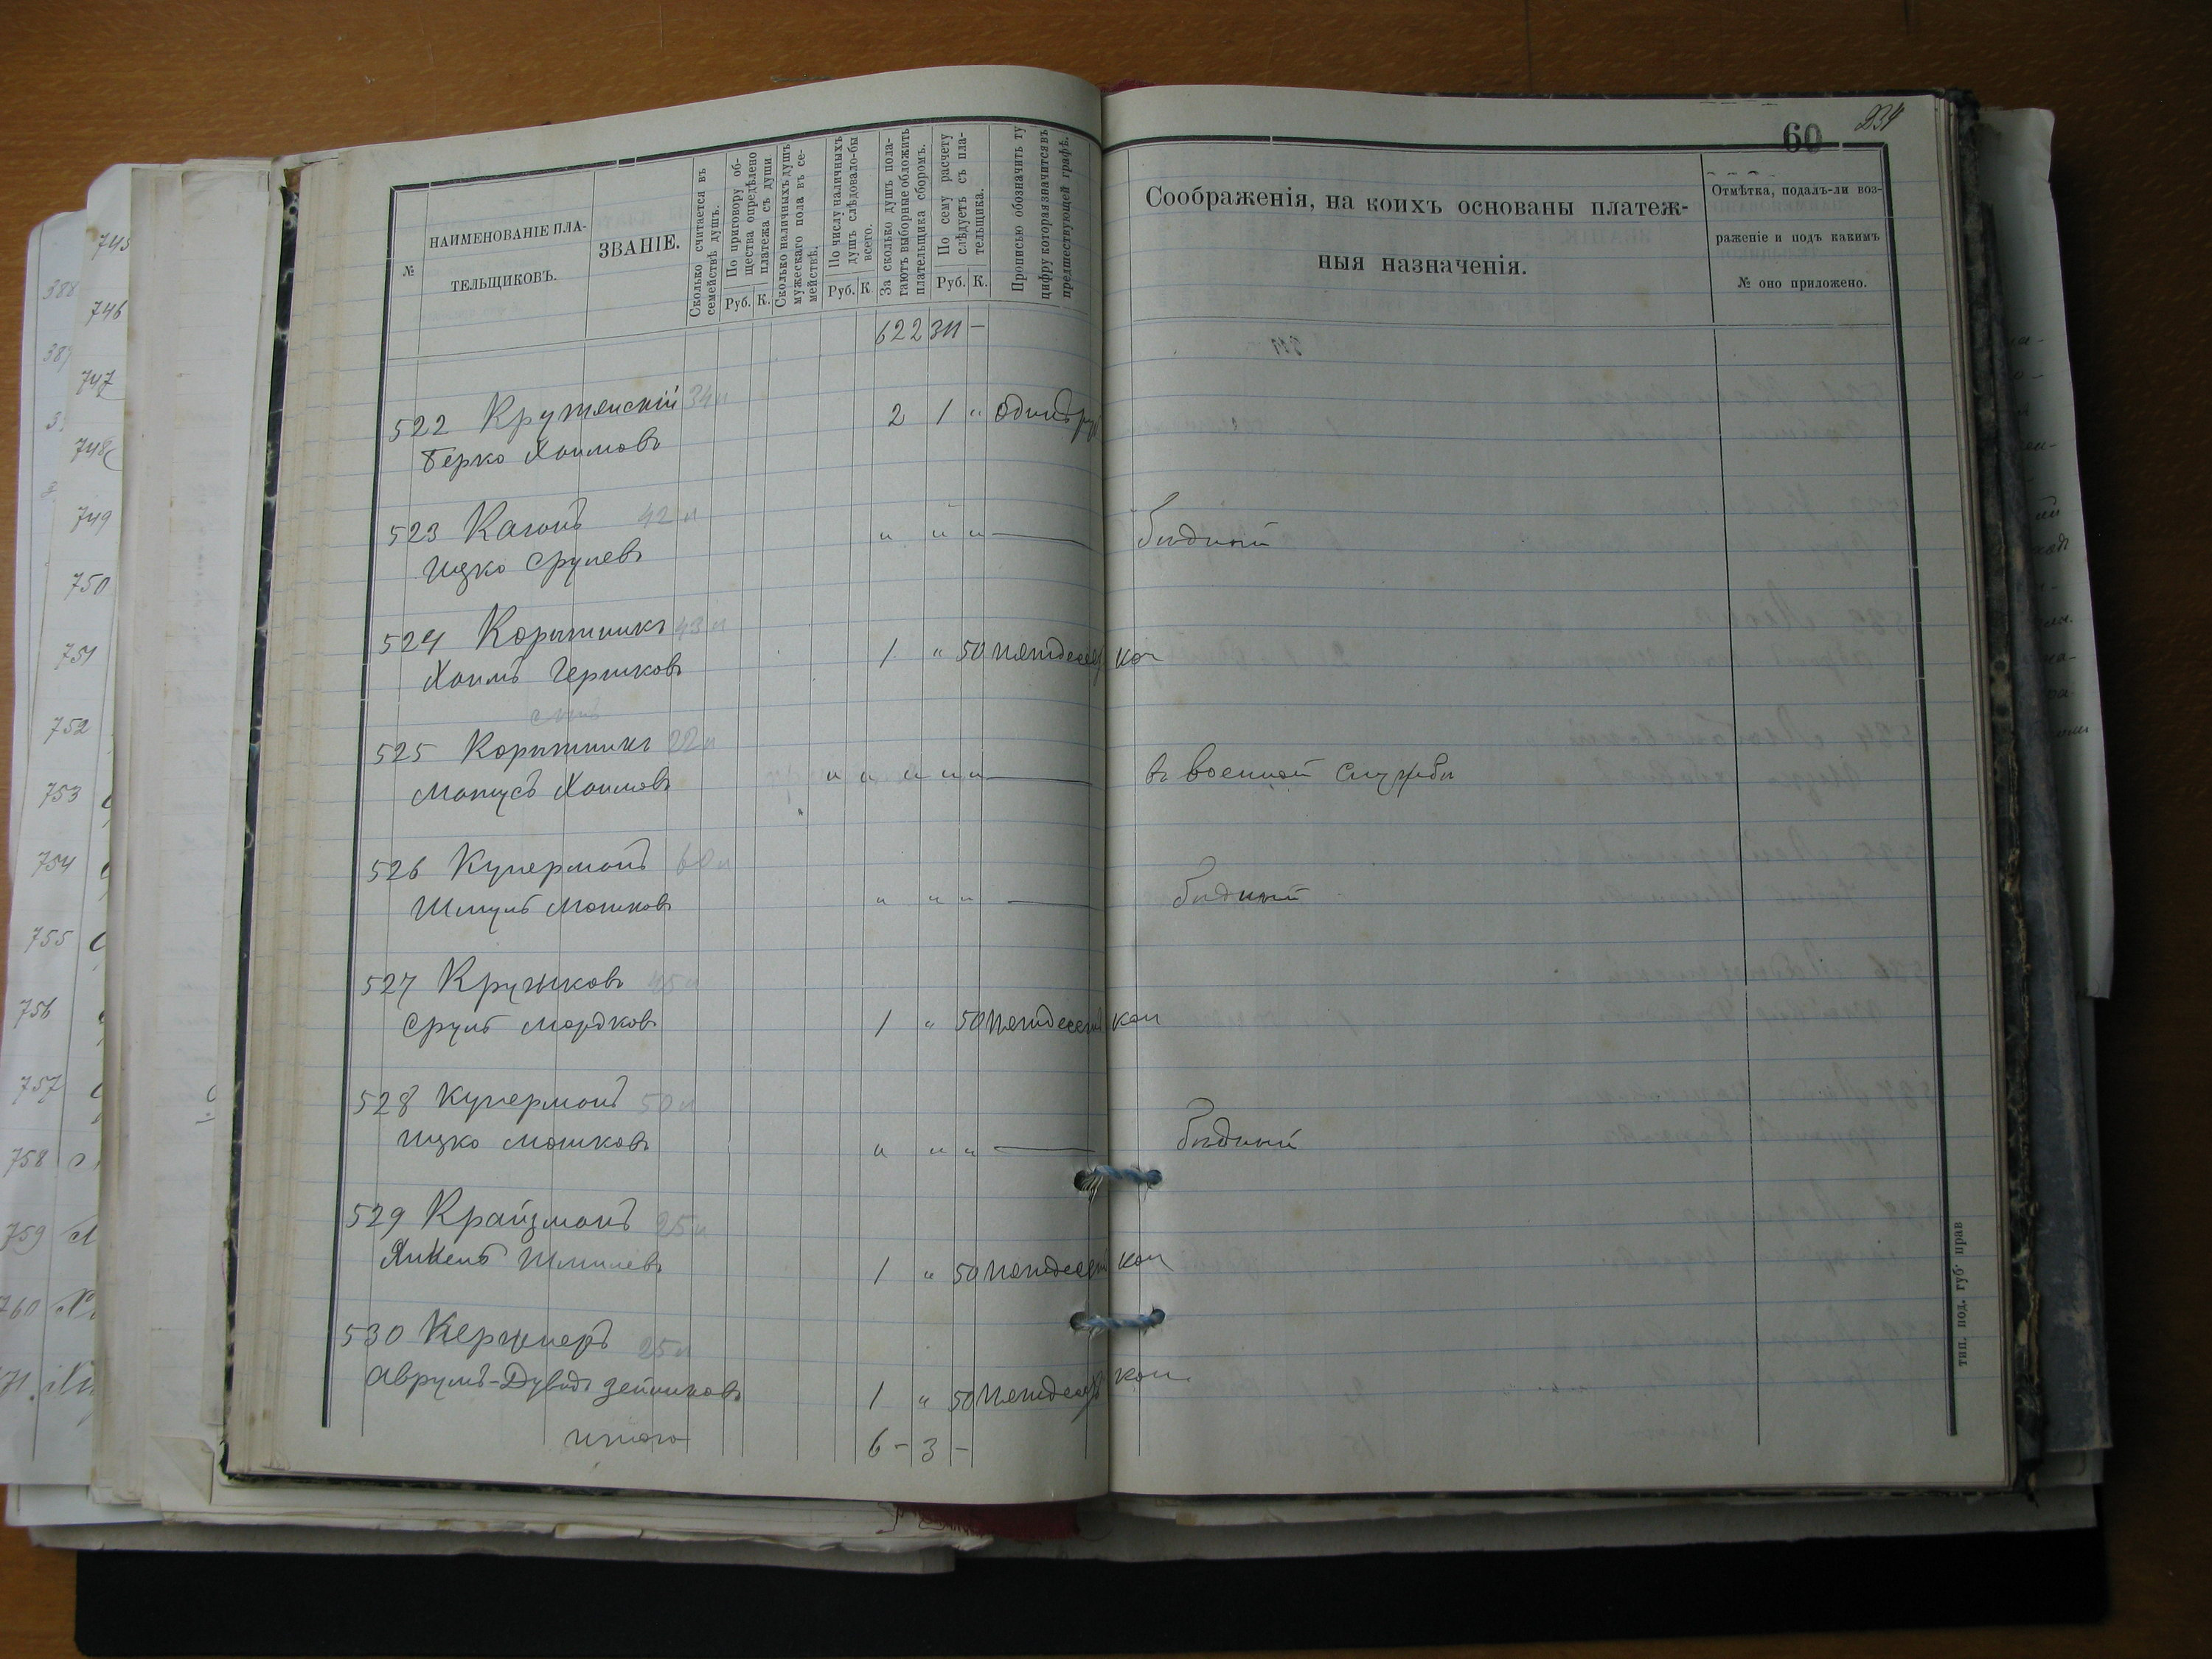 60
234
№
НАИМЕНОВАНІЕ ПЛА-
ТЕЛЬЩИКОВЪ.
ЗВАНІЕ.
Сколько считается въ
семействѣ душъ.
По приговору об-
щества опредѣлено
платежа съ души
Руб. К.
Сколько наличныхъ душъ
мужескаго пола въ се-
мействѣ.
По числу наличныхъ
душъ слѣдовало-бы
всего.
Руб. К
За сколько душъ пола-
гаютъ выборные обложить
плательщика сборомъ.
По сему расчету
слѣдуетъ съ пла-
тельщика.
Руб. К.
Прописью обозначить ту
цифру которая значится въ
предшествующей графѣ.
Соображенія, на коихъ основаны платеж-
ныя назначенія.
Отмѣтка, подалъ-ли воз-
раженіе и подъ какимъ
№ оно приложено.
622 311 -
522 Кружянскій 34 л
Берко Хаимовъ 2 1 " Одинъ руб
523 Каганъ 42 л
Ицко Срулевъ " " " — бѣдный
524 Корытникъ 43 л
Хаимъ Гершковъ 1 " 50 пятдесят коп
525 Корытникъ 22 л
Манусъ Хаимовъ " " " " " — въ военной службѣ
526 Куперманъ 60 л
Шмуль Мошковъ " " " — бѣдный
527 Кружковъ 45 л
Сруль Мордковъ 1 " 50 пятдесят коп
528 Куперманъ 50 л
Ицко Мошковъ " " " — бѣдный
529 Крайзманъ 25 л
Янкель Шмилевъ 1 " 50 пятдесят коп
530 Кержнеръ 25 л
Аврумъ-Дувидъ Зейликовъ 1 " 50 пятдесят коп
итого 6 - 3 -
тип. под. губ. прав
745
746
747
748
749
750
751
752
753
754
755
756
757
758
759
760